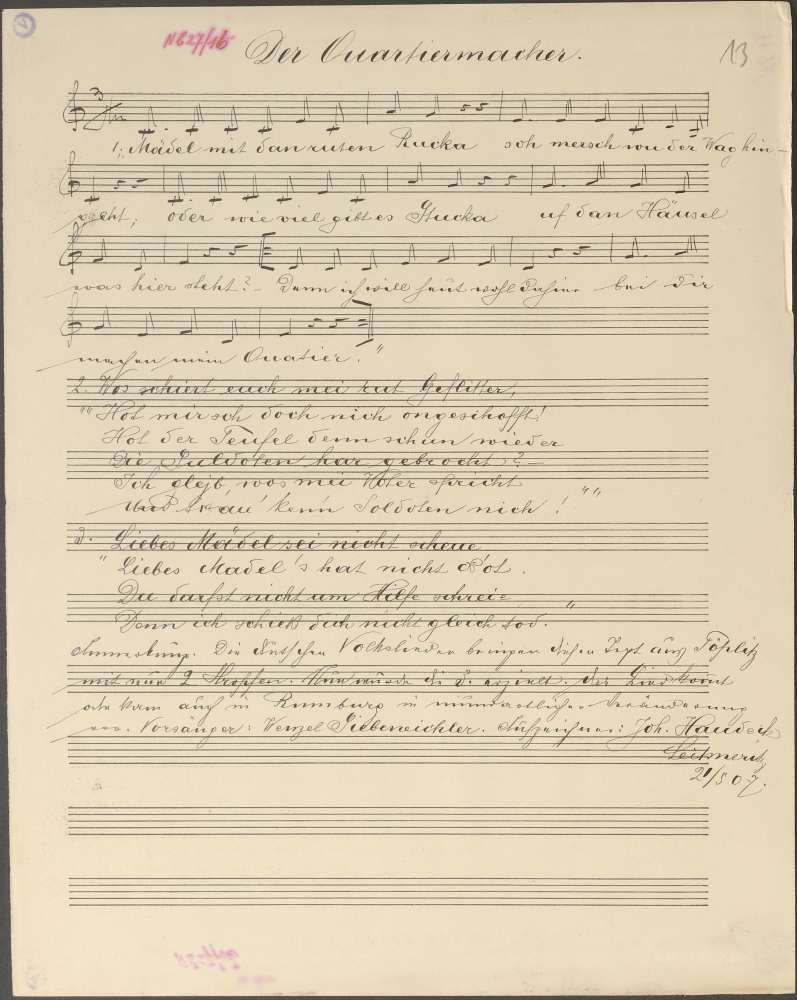 NB 27/16
Der Quartiermacher.
13
1. „Mädel mit dan ruten Rucka soh mersch wu der Wag hin-
geht; oder wie viel gibt es Stucka uf dan Häusel
was hier steht? - Denn ich will heut wohl dahier bei dir
machen mein Quatier."
2. Wos schiert euch mei rut Geflitter,
"" Hot mir'sch doch nich ongeschofft!
Hot der Teufel denn schun wieder
Die Suldoten har gebrocht? -
Ich glejb, wos mei Voter spricht
Und trau' kenn Soldoten nich! ""
3. Liebes Mädel sei nicht scheue
" Liebes Madel 's hat nicht Not.
Du darfst nicht um Hilfe schreie,
Denn ich schieß dich nicht gleich tod. "
Anmerkung. Die deutschen Volkslieder bringen diesen Text aus Töplitz
mit nur 2 Stropfen. Nun wurde die 3. erzielt. Das Lied kommt
oder kam auch in Rumburg in mundartlicher Veränderung
vor. Vorsänger: Wenzel Siebeneichler. Aufzeichner: Joh. Haudeck
Leitmeritz
21/5 07.